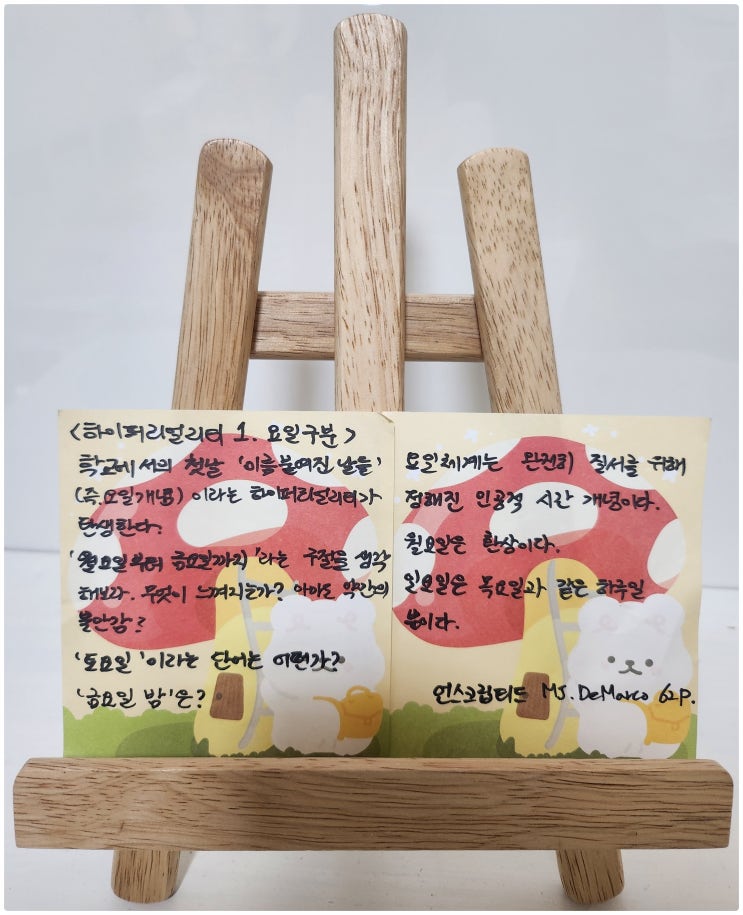 <하이퍼리얼리티 1. 요일구분>
학교에서의 첫날 '이름붙여진 날들'
(즉,요일개념) 이라는 하이퍼리얼리티가
탄생한다.
'월요일부터 금요일까지'라는 구절을 생각
해보라. 무엇이 느껴지는가? 아마도 약간의
불안감?
'토요일'이라는 단어는 어떤가?
'금요일 밤'은?
요일체계는 완전히 질서를 위해
정해진 인공적 시간 개념이다.
월요일은 환상이다.
일요일은 목요일과 같은 하루일
뿐이다.
언스크립티드 MJ. DeMarco 62p.